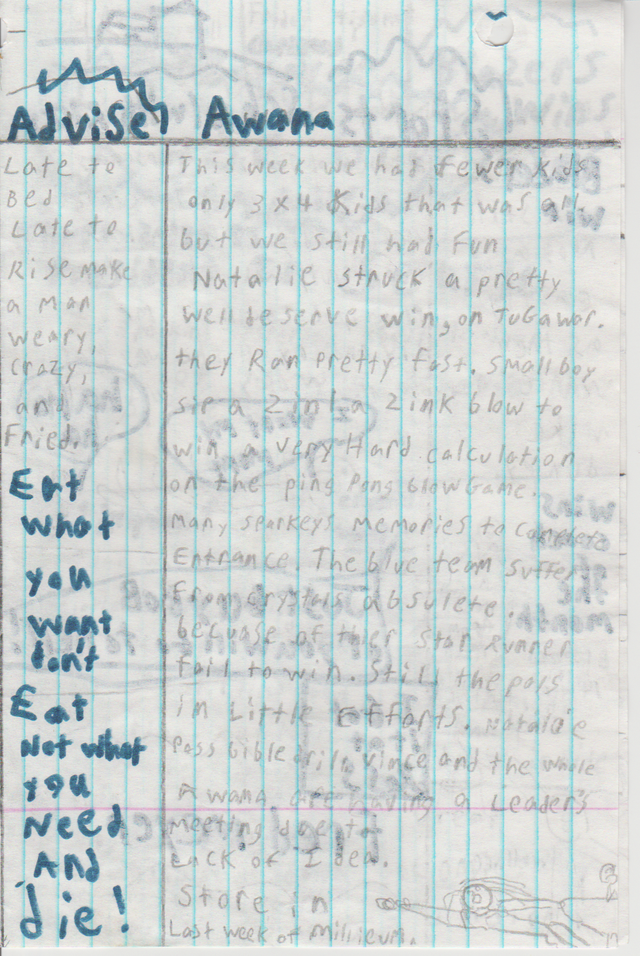 Advise
Late to
Bed
Late to
Rise make
a man
weary,
crazy,
and
Fried.
Eat
what
you
want
don't
Eat
Not what
you
Need
And
die!
Awana
This week we had fewer kids
only 3 x 4 Kids that was all,
but we still had Fun
Natalie struck a pretty
well deserve win, on TuGawar.
they Ran Pretty fast. Small boy
sip a 2 in 1 a 2 ink blow to
win a very Hard calculation
on the ping Pong blow Game.
many sparkeys memories to complete
Entrance. The blue team suffer
From crystals absulete.
becuase of thier Star Runner
fail to win. Still the pays
im Little Efforts. Natalie
Pass bible vince and the whole
Awana are having a Leader's
meeting due to
Lack of Idea.
Store in
Last week of